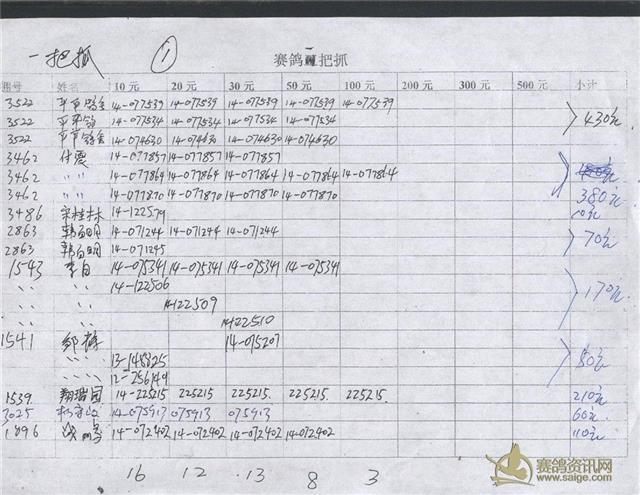 一把抓 ① 赛鸽 把抓
棚号 姓名 10元 20元 30元 50元 100元 200元 300元 500元 小计
3522 14-077539 14-077539 14-077539 14-077539 14-077539
3522 14-077534 14-077534 14-077534 14-077534 430元
3522 14-074630 14-074630 14-074630 14-074630
3462 付震 14-077857 14-077857 14-077857
3462 〃 〃 14-077864 14-077864 14-077864 14-077864 14-077864
3462 〃 〃 14-077870 14-077870 14-077870 14-077870 380元
3486 宋桂林 14-122579 10元
2863 韩向明 14-071244 14-071244 14-071244 70元
2863 韩向明 14-071245
1543 李白 14-075341 14-075341 14-075341 14-075341
〃 〃 14-122506
〃 〃 14-122509 170元
〃 〃 14-122510
1541 邹 14-075207
13-148825 80元
12-256149
1539 翔瑞园 14-225215 225215 225215 225215 225215 210元
3025 14-075913 075913 075913 60元
1896 14-072402 14-072402 14-072402 14-072402 110元
16 12 13 8 3
赛鸽资讯网
www.saige.com